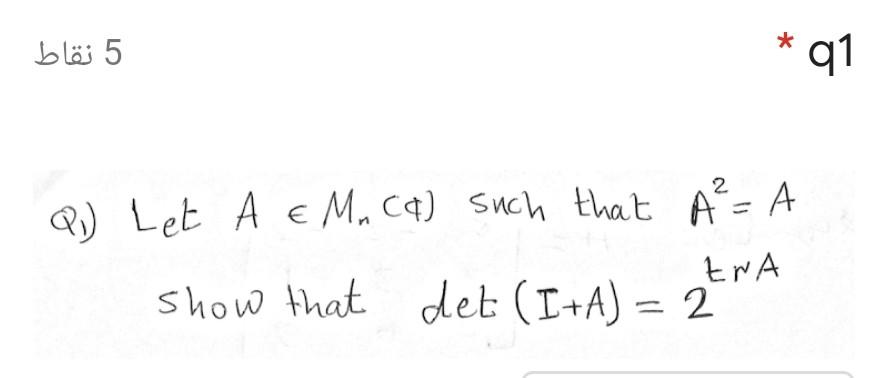 * q1
5 نقاط
Q1) Let A ∈ Mn(ℂ) such that A² = A
show that det (I+A) = 2^trA